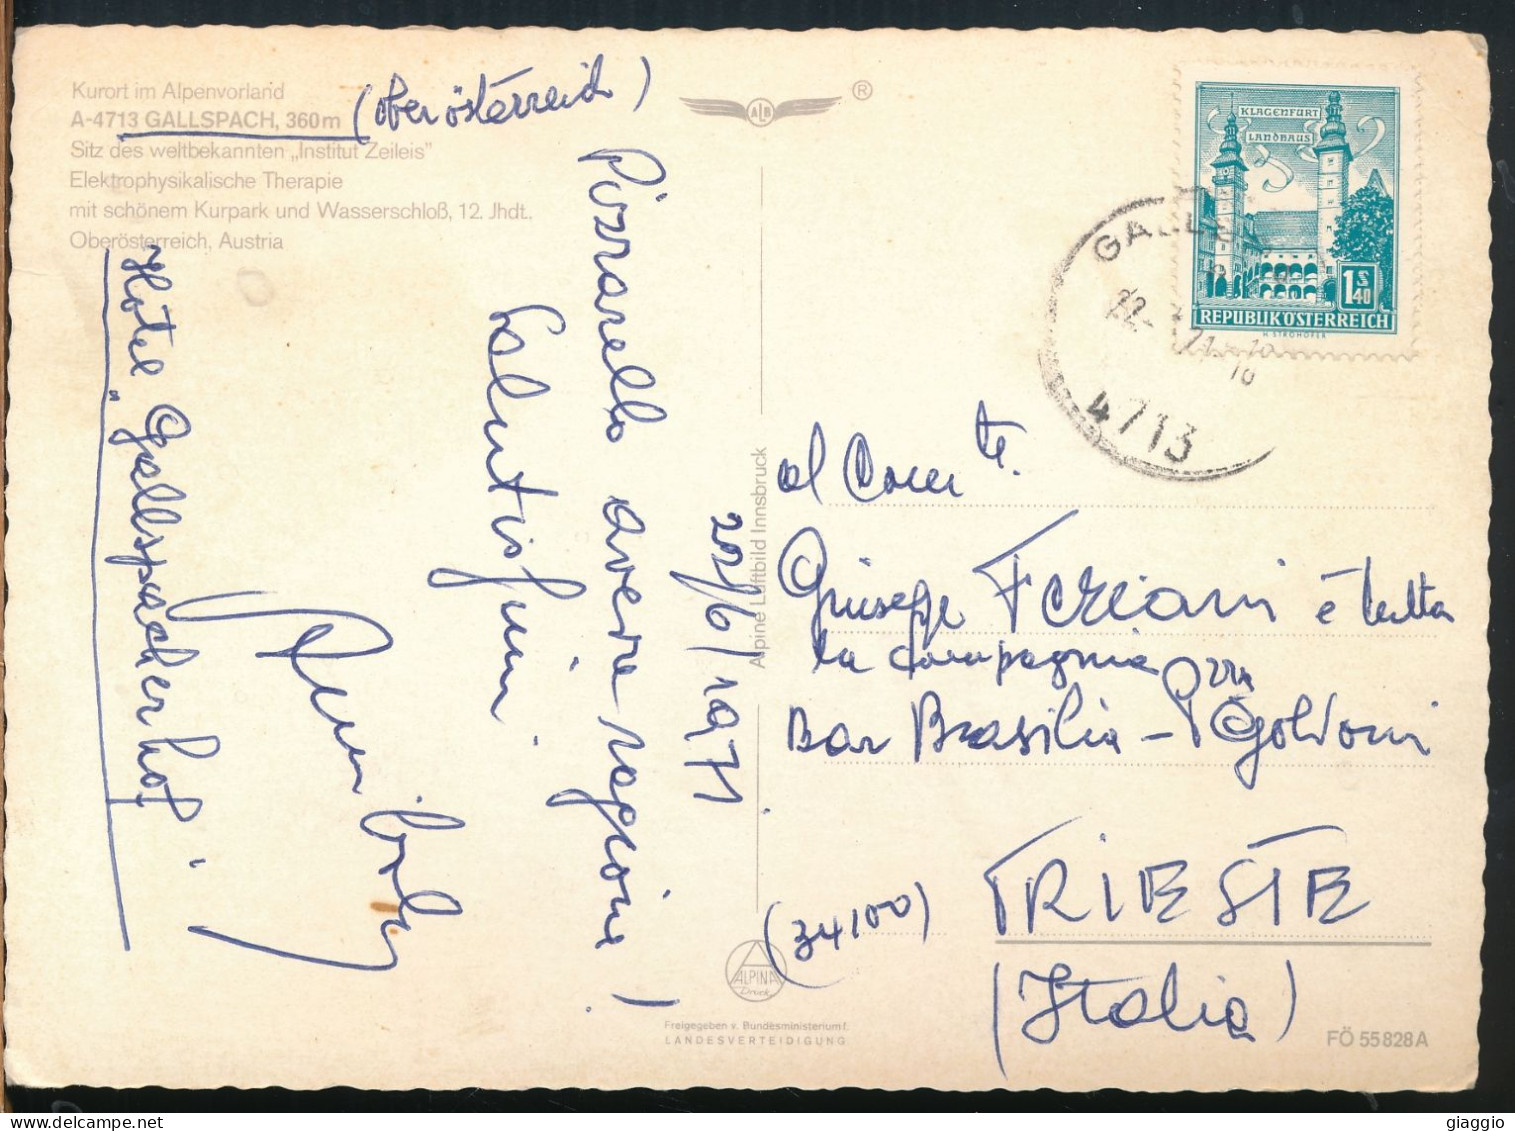 Kurort im Alpenvorland
A-4713 GALLSPACH, 360m (Oberösterreich)
Sitz des weltbekannten „Institut Zeileis"
Elektrophysikalische Therapie
mit schönem Kurpark und Wasserschloß, 12. Jhdt.
Oberösterreich, Austria
Hotel
„Gallspacherhof"
Pizzarello aveva ragione!
Salutissimi
20/6/1971
ALB
®
Alpine Luftbild Innsbruck
KLAGENFURT
LANDHAUS
1 S 40
REPUBLIK ÖSTERREICH
H. STROHOFER
4713
al Com te.
Giuseppe Feriani e tutta
la compagnia
Bar Brasilia - P Goldoni
(34100) TRIESTE
(Italia)
ALPINA
Druck
Freigegeben v. Bundesministerium f.
LANDESVERTEIDIGUNG
FÖ 55828A
giaggio